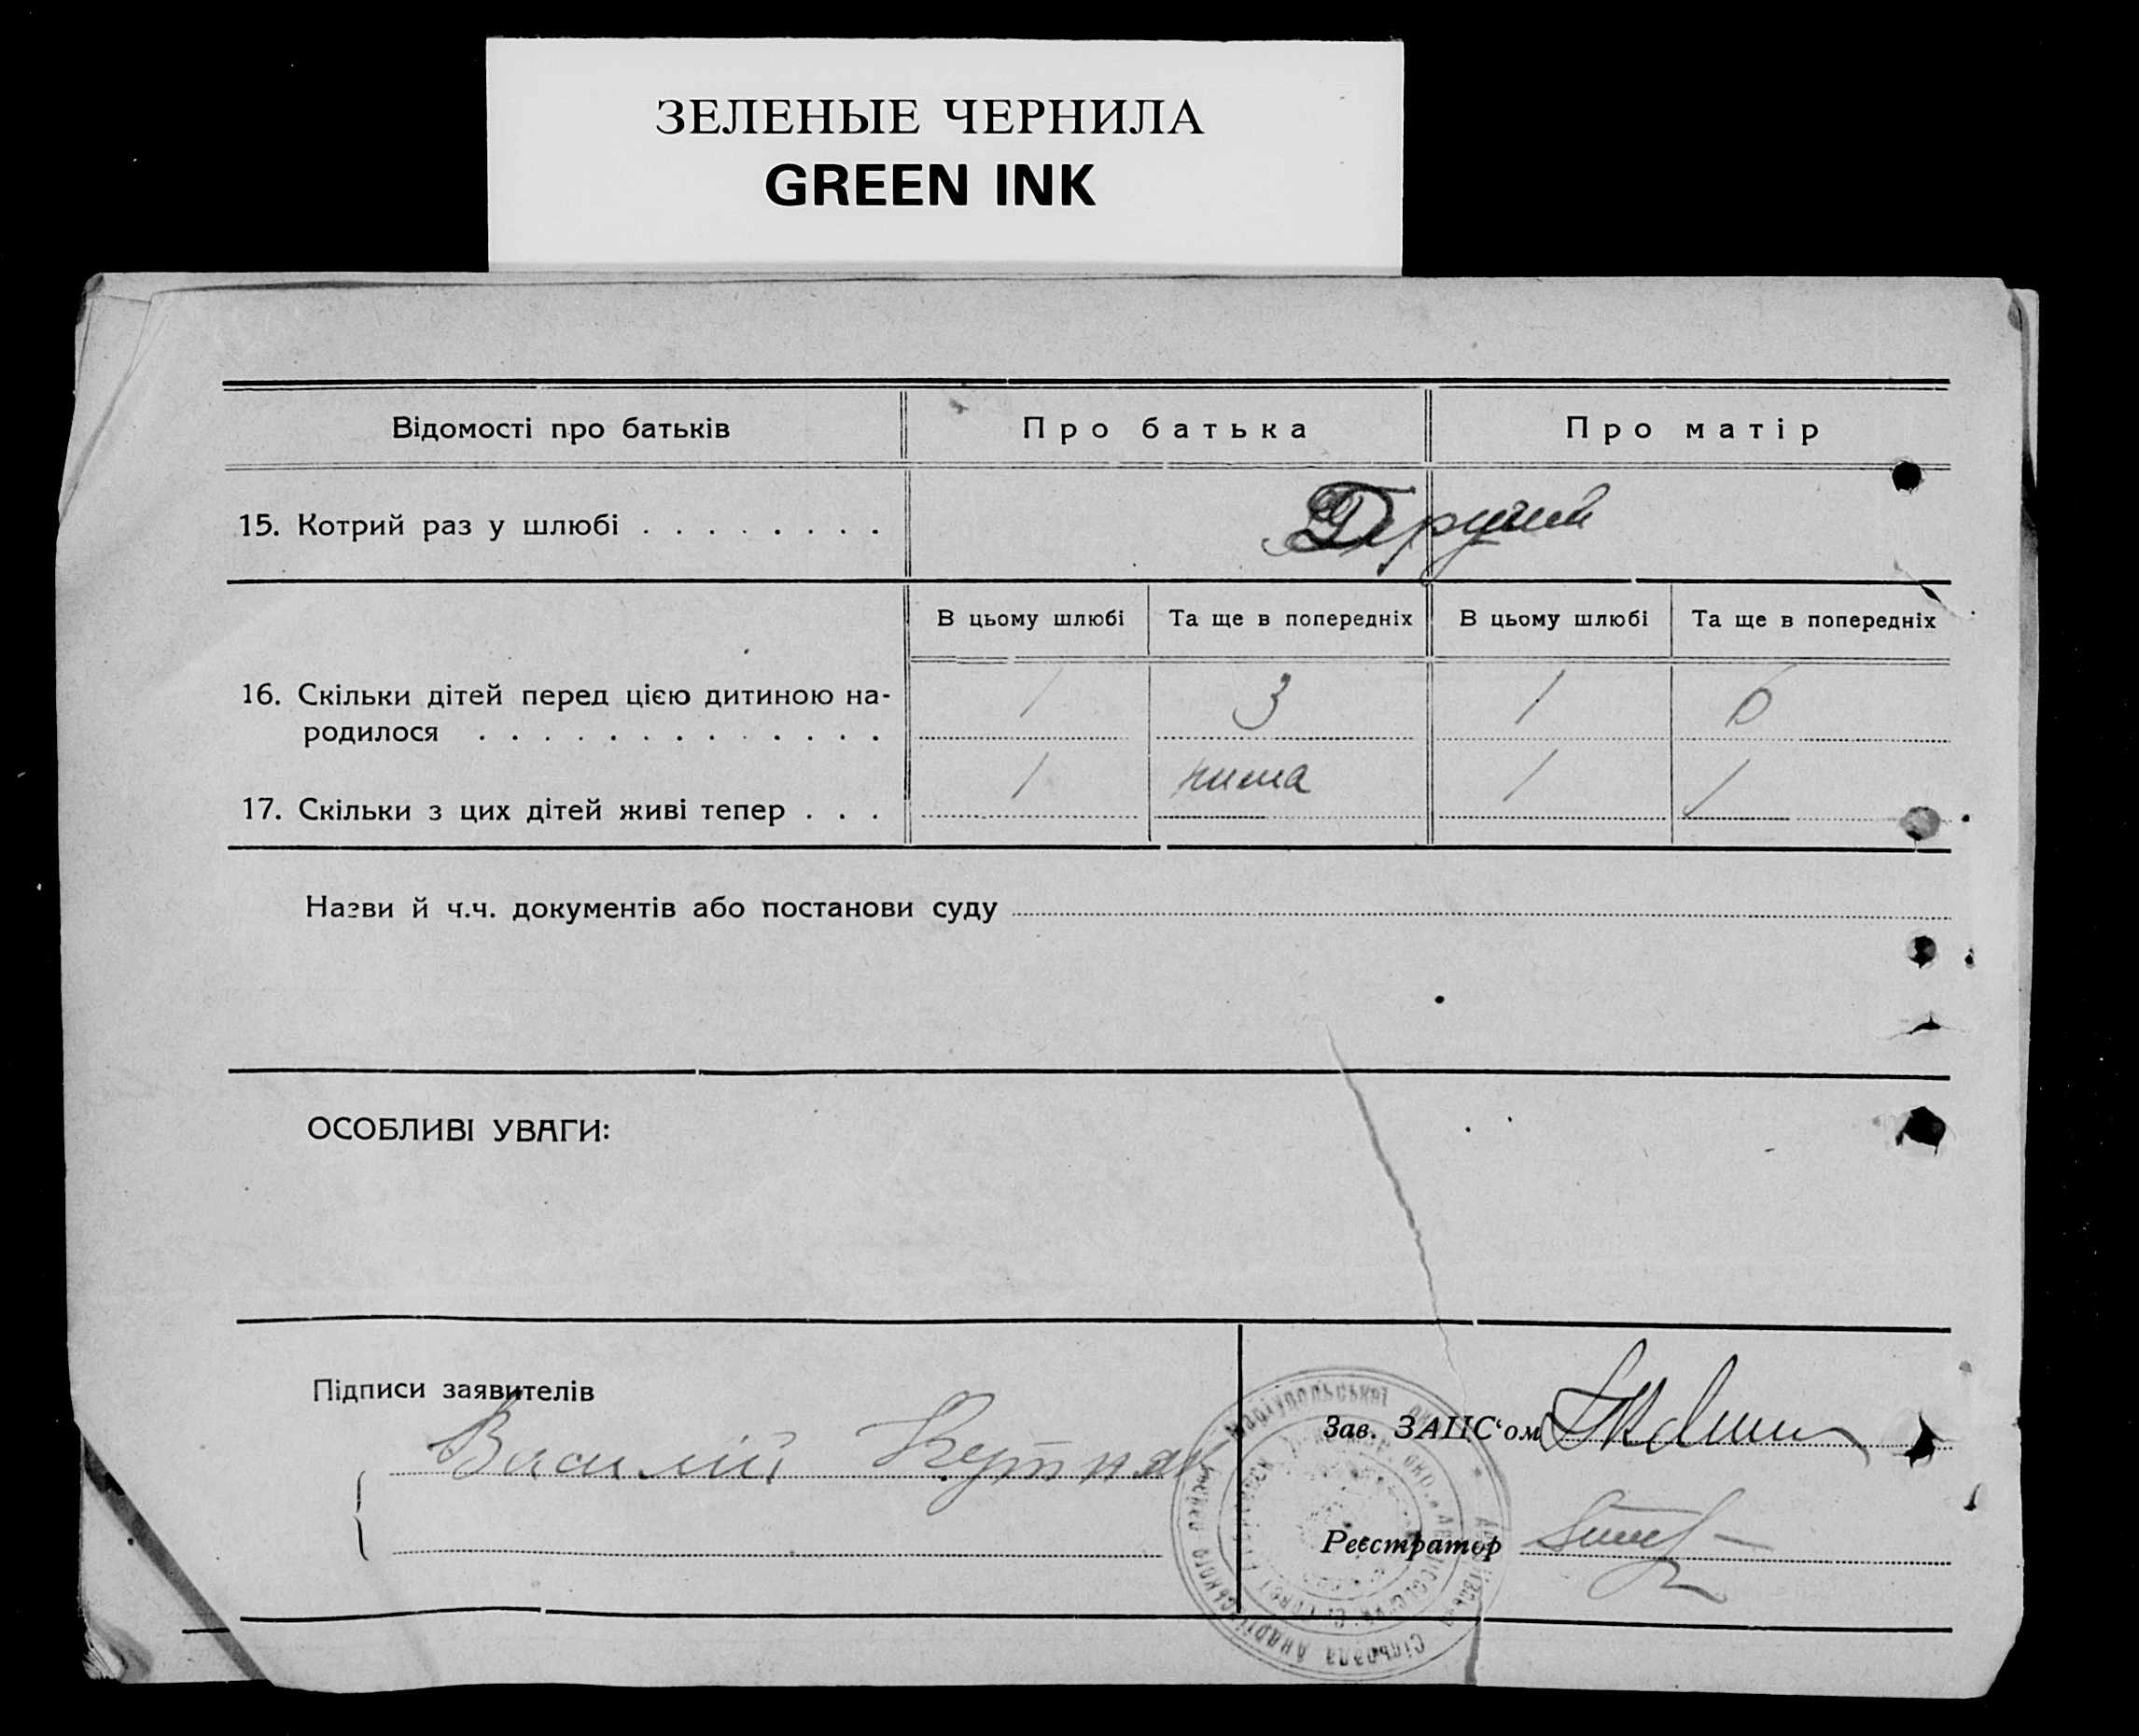 ЗЕЛЕНЫЕ ЧЕРНИЛА
GREEN INK
Відомості про батьків Про батька Про матір
15. Котрий раз у шлюбі . . . . . . . . Другий
В цьому шлюбі Та ще в попередніх В цьому шлюбі Та ще в попередніх
16. Скільки дітей перед цією дитиною на-
родилося . . . . . . . . . . . . . 1 3 1 6
17. Скільки з цих дітей живі тепер . . . 1 нима 1 1
Назви й ч.ч. документів або постанови суду
ОСОБЛИВІ УВАГИ:
Підписи заявителів
Василий
Зав. ЗАГС‘ом
Реєстратор
Маріупольської
Сільрада